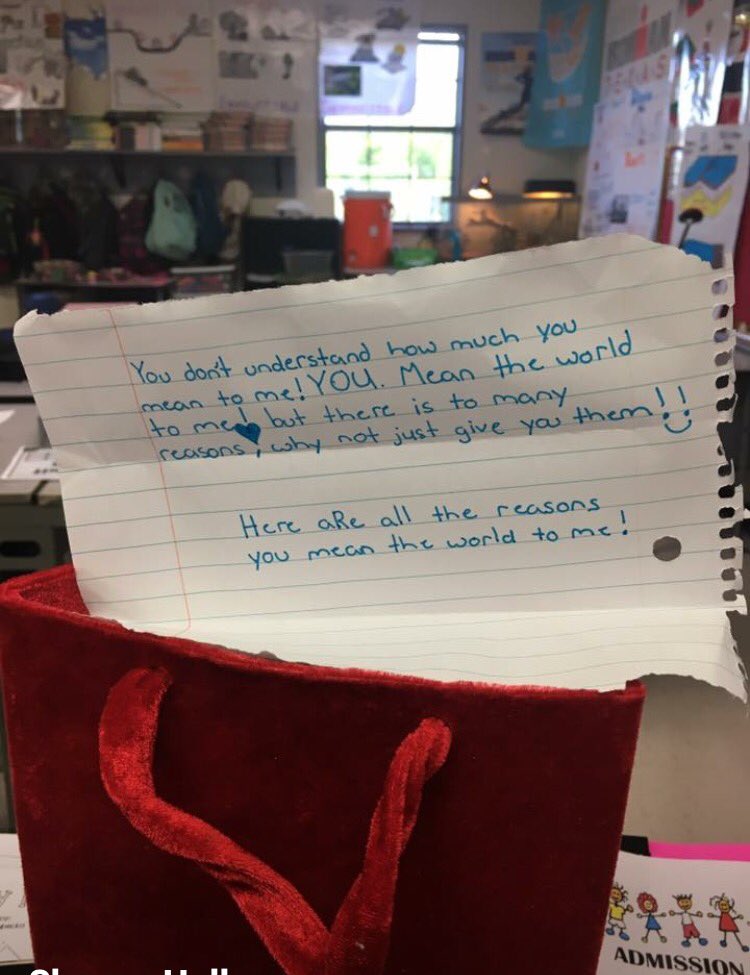 You don't understand how much you
mean to me! YOU. Mean the world
to me! but there is to many
reasons, why not just give you them!!
Here aRe all the reasons
you mean the world to me!
ADMISSION